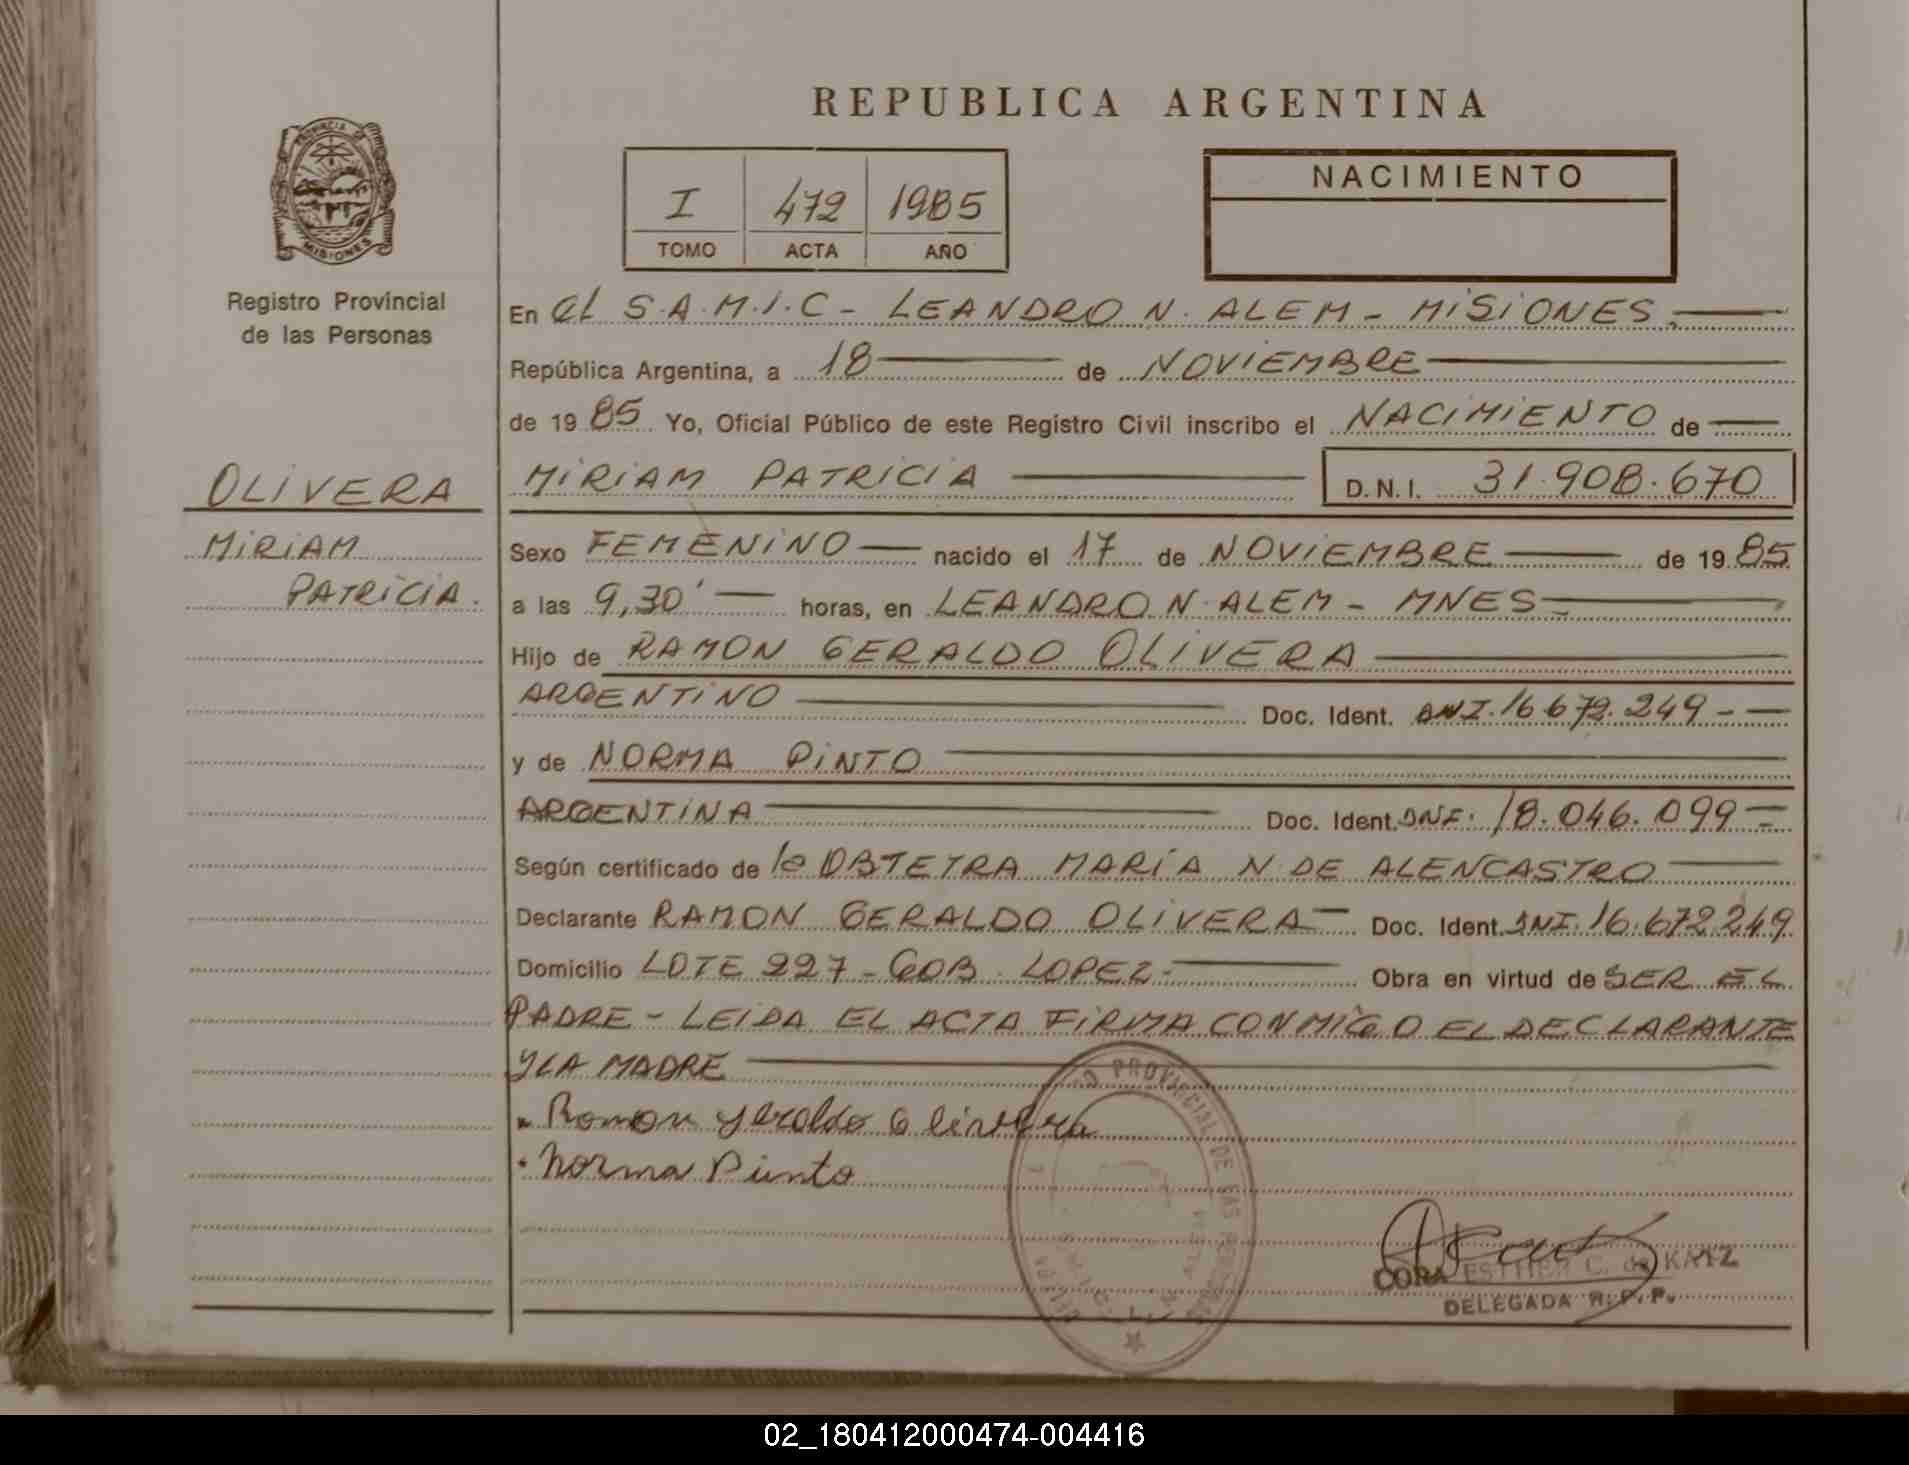 REPUBLICA ARGENTINA
PROVINCIA DE
MISIONES
Registro Provincial
de las Personas
I 472 1985
TOMO ACTA AÑO
NACIMIENTO
En el S.A.M.I.C - LEANDRO N. ALEM - MISIONES.
República Argentina, a 18 de NOVIEMBRE
de 1985 Yo, Oficial Público de este Registro Civil inscribo el NACIMIENTO de
OLIVERA
MIRIAM PATRICIA D.N.I. 31.908.670
MIRIAM
PATRICIA.
Sexo FEMENINO nacido el 17 de NOVIEMBRE de 1985
a las 9,30' horas, en LEANDRO N. ALEM - MNES
Hijo de RAMON GERALDO OLIVERA
ARGENTINO Doc. Ident. DNI. 16.672.249
y de NORMA PINTO
ARGENTINA Doc. Ident. DNI. 18.046.099
Según certificado de la OBTETRA MARÍA N. DE ALENCASTRO
Declarante RAMON GERALDO OLIVERA Doc. Ident. DNI. 16.672.249
Domicilio LOTE 227 - GOB. LOPEZ - Obra en virtud de SER EL
PADRE - LEIDA EL ACTA FIRMA CONMIGO EL DECLARANTE
Y LA MADRE
Ramon Geraldo Olivera
Norma Pinto
PROVINCIAL DE LAS PERSONAS
CORA ESTHER C. de KATZ
DELEGADA R.P.P.
02_180412000474-004416